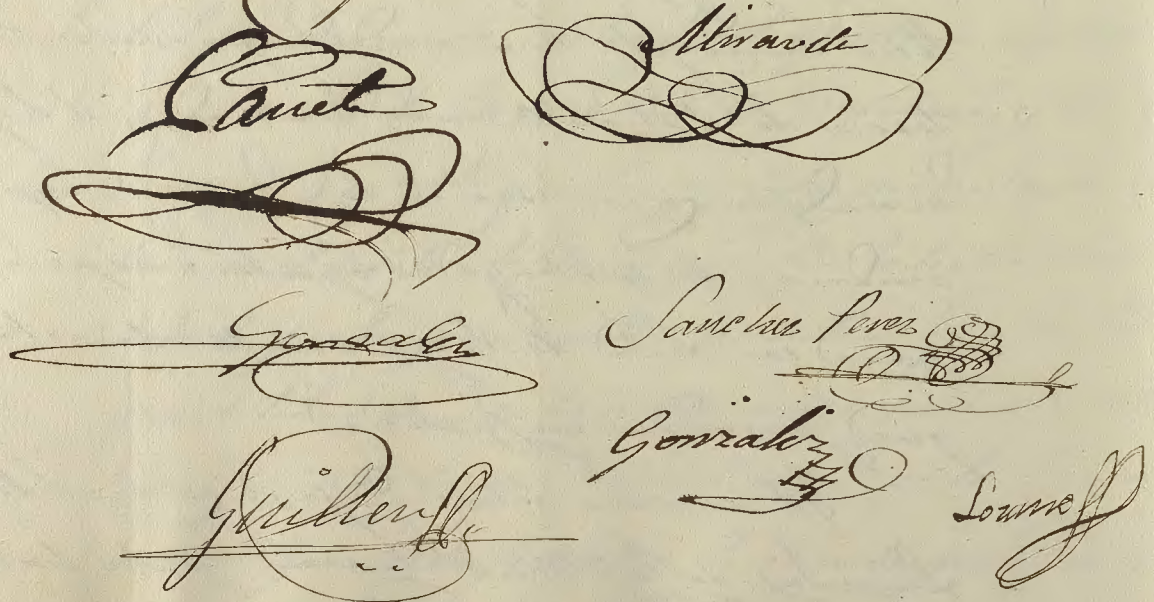 Cañete Miranda
Gonzalez Sanchez Perez
Gonzalez
Guillen